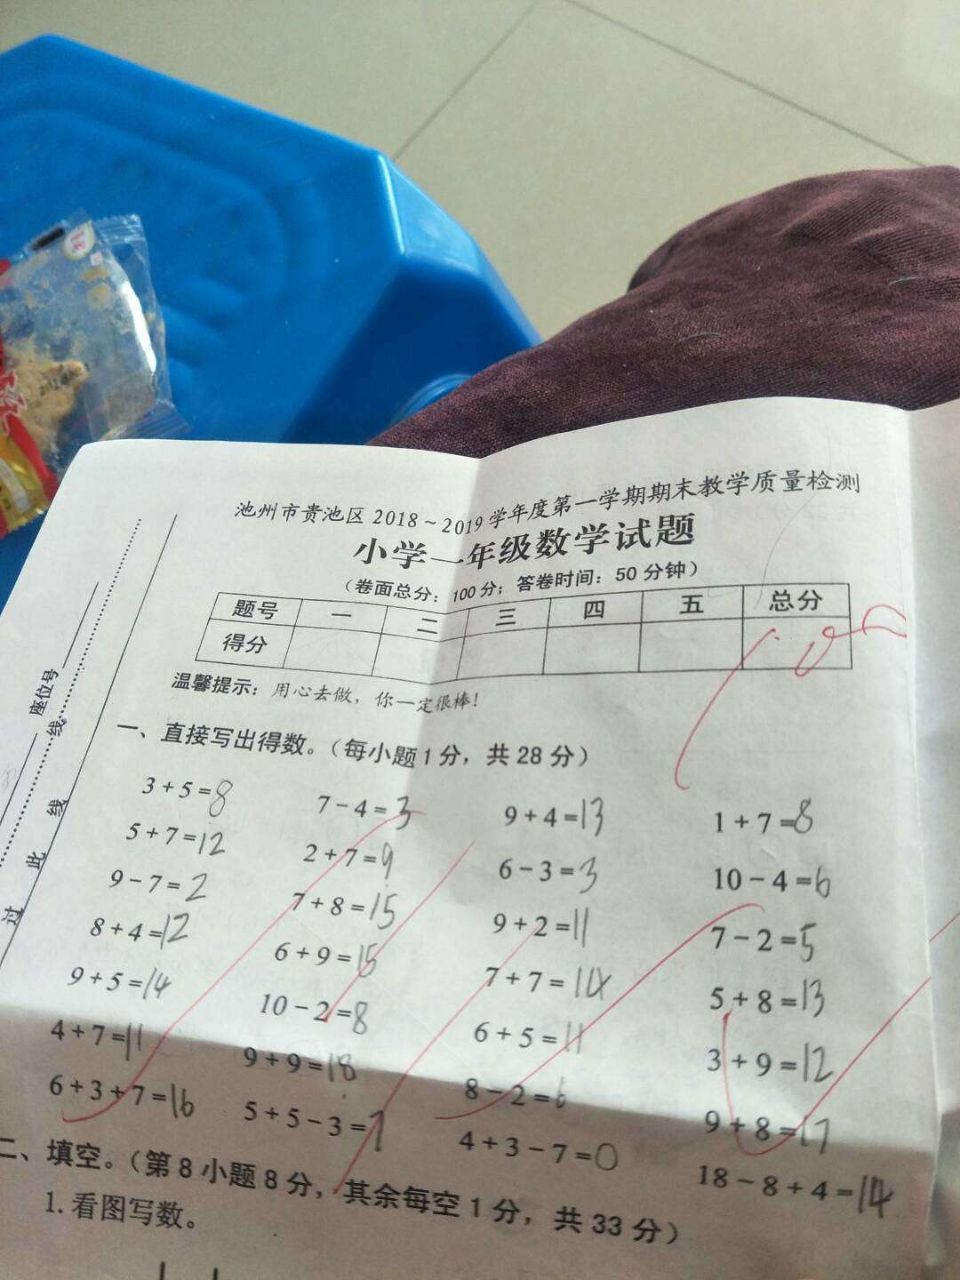 池州市贵池区2018～2019学年度第一学期期末教学质量检测
小学一年级数学试题
（卷面总分：100分；答卷时间：50分钟）
题号 一 二 三 四 五 总分
得分
温馨提示：用心去做，你一定很棒！
一、直接写出得数。（每小题1分，共28分）
3+5=8 7-4=3 9+4=13 1+7=8
5+7=12 2+7=9 6-3=3 10-4=6
9-7=2 7+8=15 9+2=11 7-2=5
8+4=12 6+9=15 7+7=14 5+8=13
9+5=14 10-2=8 6+5=11 3+9=12
4+7=11 9+9=18 8-2=6 9+8=17
6+3+7=16 5+5-3=7 4+3-7=0 18-8+4=14
二、填空。（第8小题8分，其余每空1分，共33分）
1.看图写数。
座位号
过 此 线 线